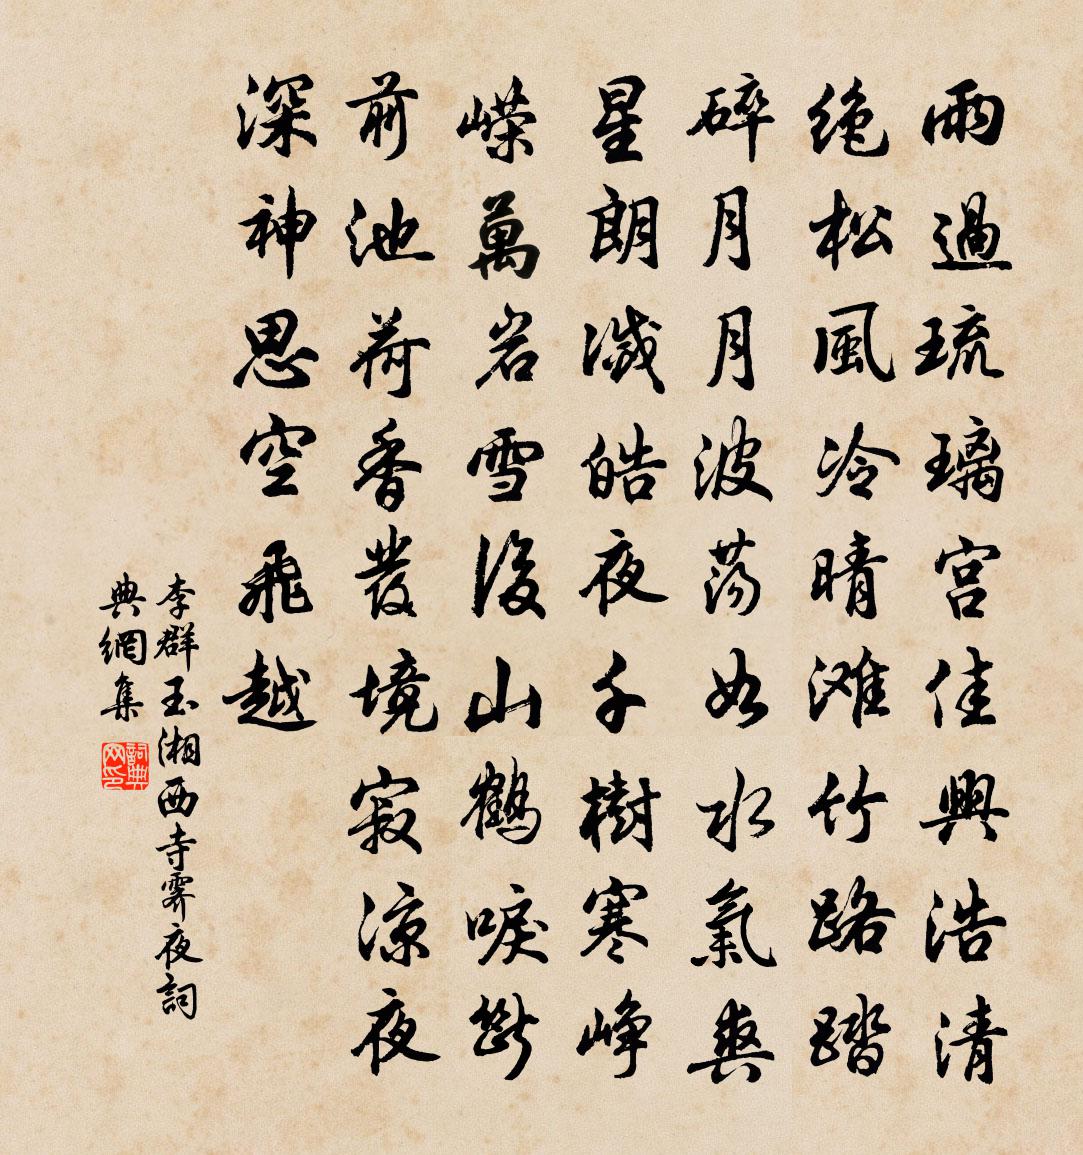 雨過琉璃宮佳興浩清
絶松風冷晴灘竹路踏
碎月月波蕩如水氣爽
星朗滅皓夜千樹寒崢
嶸萬岩雪後山鶴唳斷
前池荷香發境寂涼夜
深神思空飛越
李群玉湘西寺霽夜詞
典網集
詞典
网印